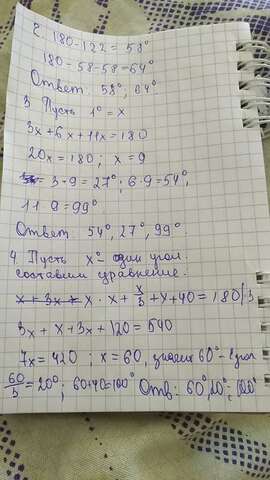 2. 180-122 = 58°
180-58-58=64°
Ответ 58°, 64°
3 Пусть 1° = x
3x+6x+11x=180
20x=180; x=9
= 3·9=27°; 6·9=54°,
11·9=99°
Ответ 54°, 27°, 99°.
4 Пусть x° один угол.
составим уравнение.
x · x + x/3 + x+40=180/·3
3x+x+3x+120=540
7x=420; x=60, значит 60°-1угол
60/3=20°; 60+40=100° Отв: 60°, 20°, 100°